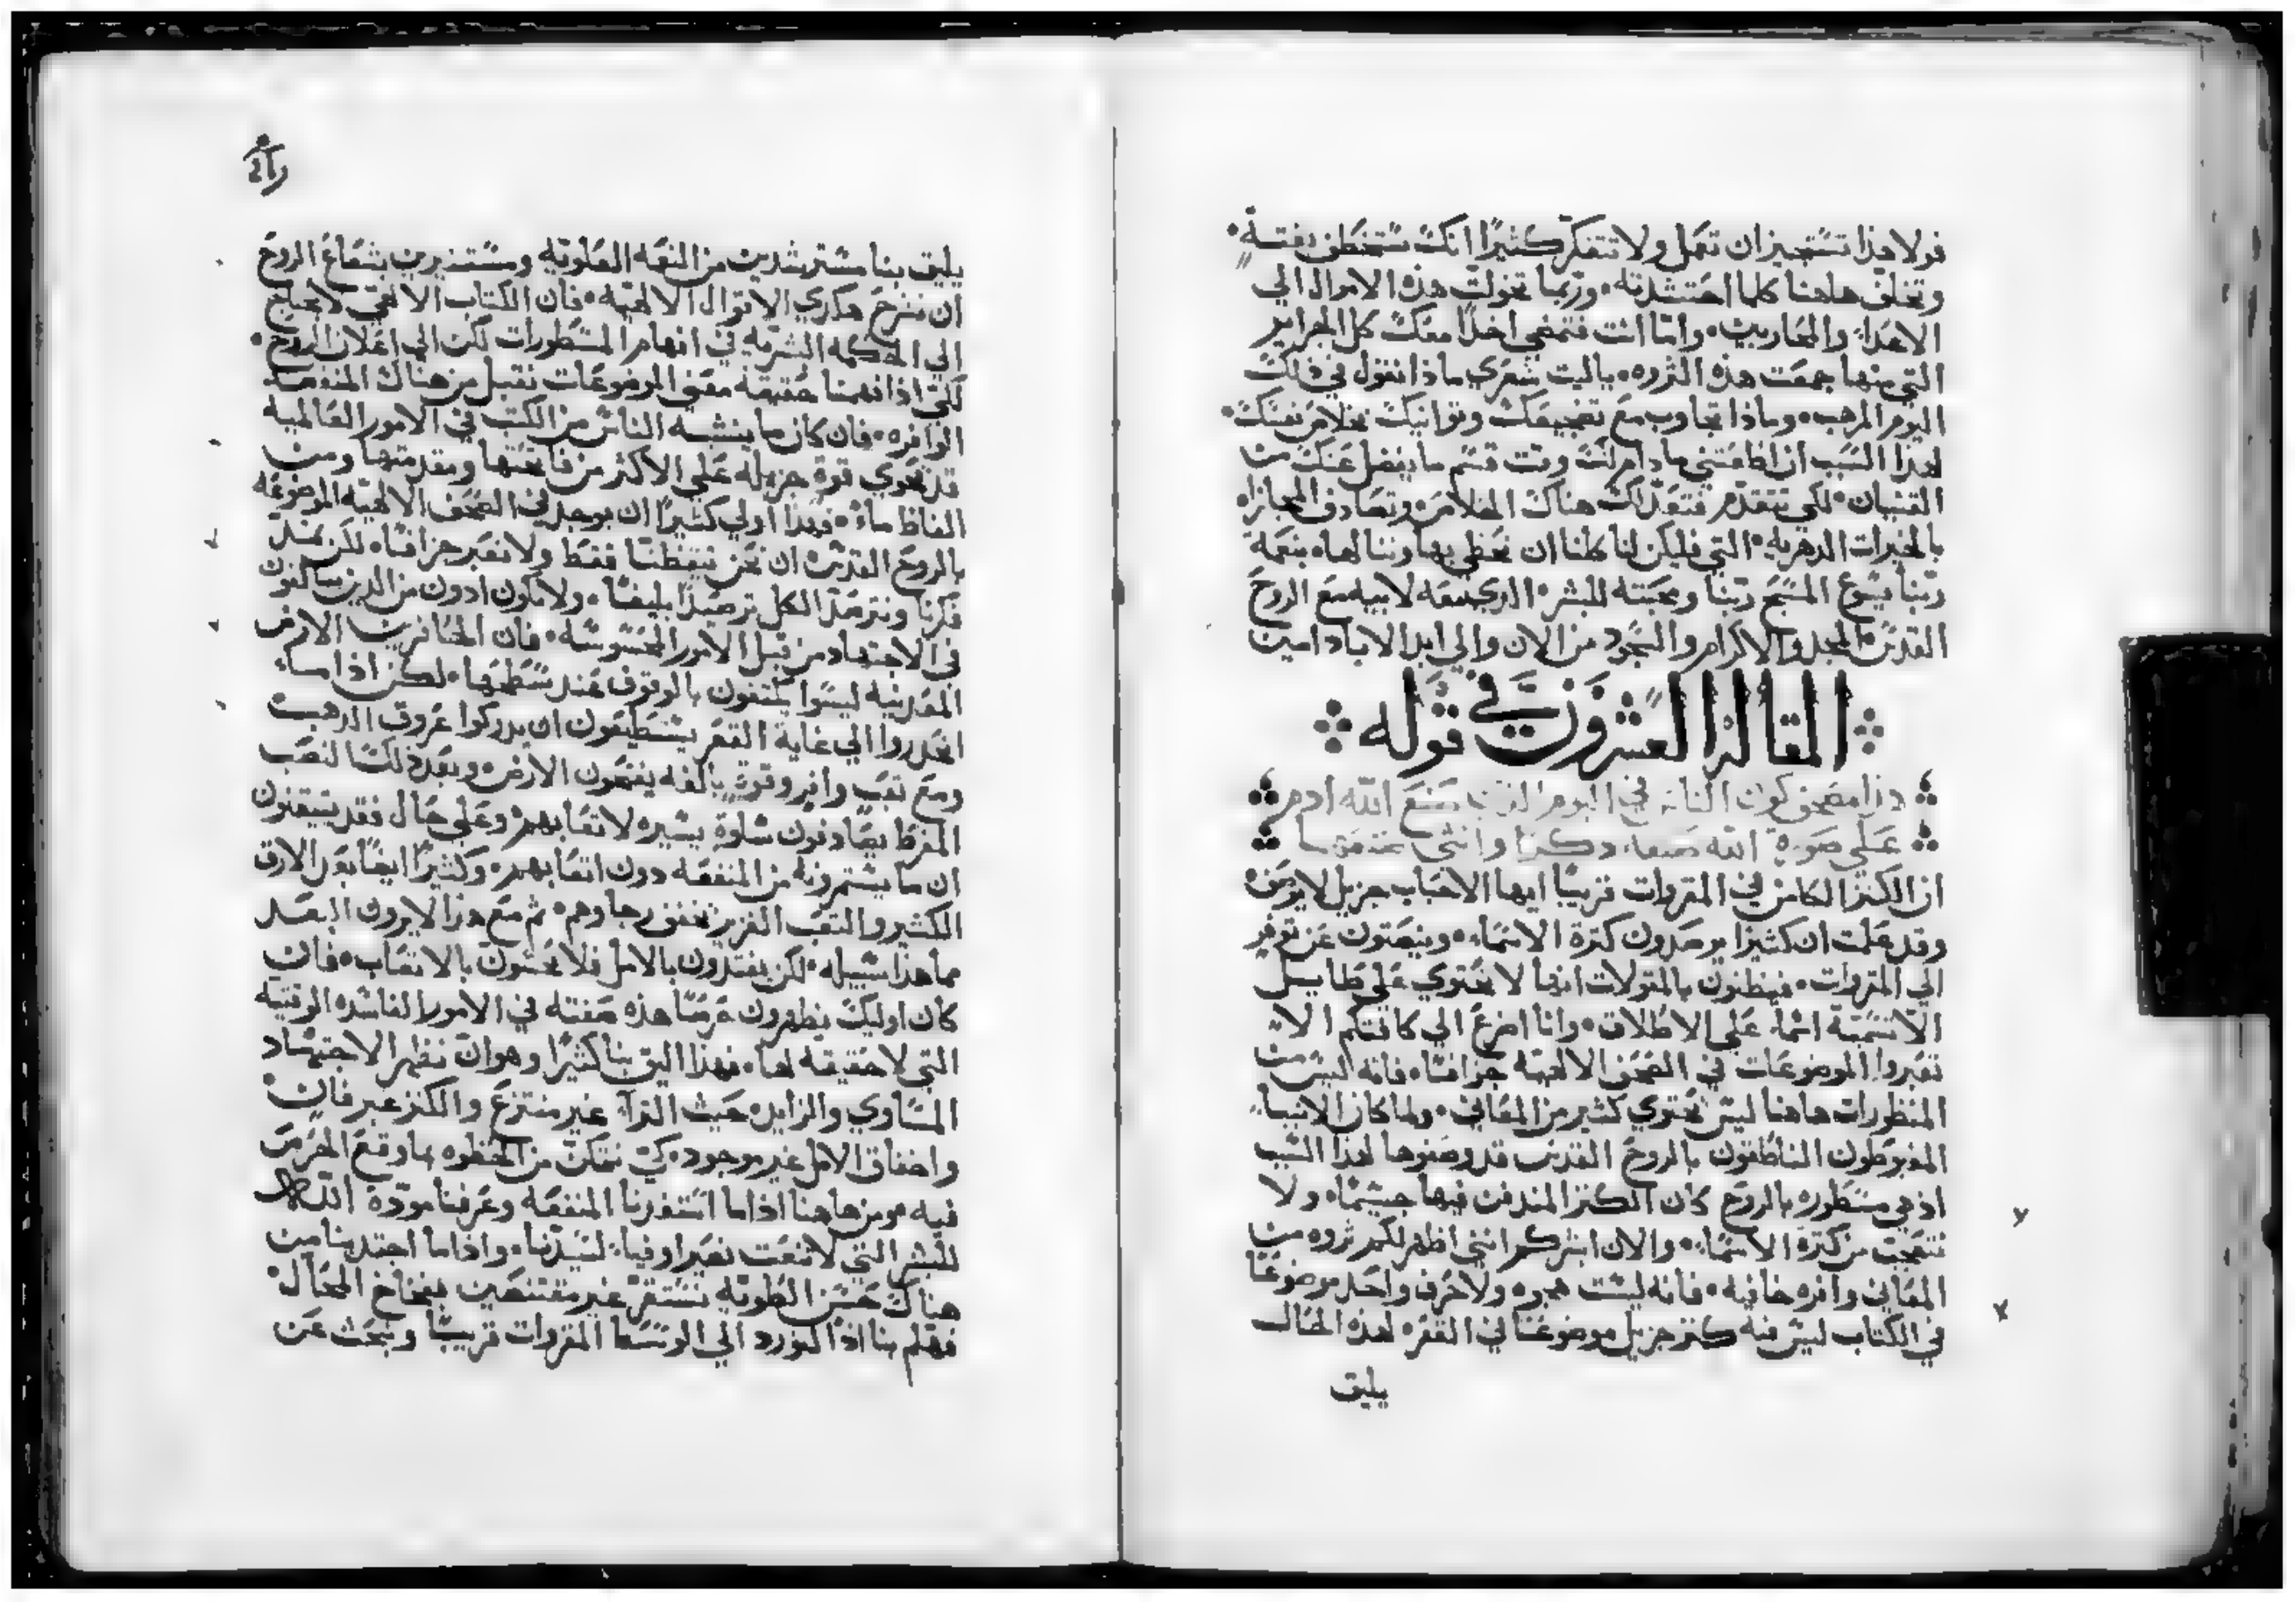 فولا هذا تستجيز ان تهمل ولا تتفكر كثيرًا انك ستختطف بغتة
وتخلف هاهنا كلما احتشدته وربما تحولت هذه الاموال الي
الاعداء والمحاربين واما انت فتمضي اخذًا معك كل الجراير
التي منها جمعت هذه الثروه ياليت شعري ماذا نقول في ذلك
اليوم المرهب وماذا تجاوب مع تضجيعك وتوانيك بخلاص نفسك
لهذا السبب ان اطعتني مادام لك وقت قسم ما يفضل عنك من
القنيان لكي تتقدم فتعد لك هناك الخلاص وتصادف المجازاه
بالخيرات الدهريه التي فليكن لنا كلنا ان نحظي بها وننالها بنعمة
ربنا يسوع المسيح ربنا ومحبته للبشر الذي معه لابيه مع الروح
القدس المجد والاكرام والسجود من الان والي ابد الاباد امين
المقالة العشرون في قوله
هذا مصحف كون الناس في اليوم الذي صنع الله ادم
علي صورة الله صنعه ذكرًا وانثي صنعهما
ان الكنز الكامن في المقروات قريبًا ايها الاحباب جزيل لا يوصف
وقد علمت ان كثيرًا يرصدون كثرة الاسماء وينصتون عن
الي المقروات فيظنون بالمقولات انها لا تحتوي علي طايل
الا تسمية اسماء علي الاطلاق وانا اضرع الي كافتكم الا
تعبروا الموضوعات في الصحف الالهيه جزافًا فانه ليس من
المسطورات هاهنا ليس تحتوي كثير من المعاني ولما كان الانبياء
المغبوطون الناطقون بالروح القدس قد وضعوها لهذا السبب
اذ هي مسطوره بالروح كان الكنز المندفن فيها جسيمًا ولا
تتعجب من كثرة الاسماء والان ابشركم انني اظهر لكم ثروه من
المعاني وافره خافيه فانه ليست هجوه ولا حرف واحد موضوعًا
في الكتاب ليس فيه كنز جزيل موضوعًا في القعر لهذه الحال
يليق
يليق بنا مسترشدين من النعمه العلويه ومستنيرين بشعاع الروح
ان نشرح هكذي الاقوال الالهيه فان الكتاب الالهي لا يحتاج
الي الحكمه البشريه في افهام المسطورات لكن الي اعلان الروح
لكي اذا فهمنا حقيقة معني الموضوعات نقبل من هناك المنفعه
الوافره فان كان ما ينشيه الناس من الكتب في الامور العالميه
قد تحوي قوة جزيله علي الاكثر من فاتحتها ومقدمتها ومن
الفاظ ماء فهذا اولي كثيرًا ان يوجد في الصحف الالهيه الموضوعه
بالروح القدس ان نحن تيقظنا فقط ولا نعبر جزافًا لكن نمد
فكرنا ونترصد الكل ترصيدًا بليغًا ولا نكون ادون من الذين يبالغون
في الاجتهاد من قبل الامور المحسوسه فان الحافرين الارض
المعدنيه ليسوا يكتفون بالوقوف عند سطحها لكن اذا ما
انحدروا الي غاية القعر يستطيعون ان يدركوا عروق الذهب
ومع تعب وافر وقوة بالغه يفتحون الارض وبعد ذلك النصب
المفرط يصادفون سلوة يسيره لاتعابهم وعلي حال فقد يتيقنون
ان ما يستثمرونه من المنفعه دون اتعابهم وكثيرًا ايضًا بعد الارق
الكثير والتعب الغزير يخفق رجاوهم ثم مع هذا لا يرون البعد
مما هذا سبيله لكن يغتدون بالامل فلا يحسون بالاتعاب فان
كان اوليك يظهرون حرصًا هذه صفته في الامور الفاسده الوقتيه
التي لا حقيقه لها فهذا اليق بنا كثيرًا وهو ان نظهر الاجتهاد
المساوي والزايد حيث الثراء غير منتزع والكنز غير فان
واخفاق الامل غير موجود كي نتمكن من الحظوه بما وقع الحرص
فيه ومن هاهنا اذا ما استفدنا المنفعه وعرفنا مودة الله
للبشر التي لا تنعت نصير اوفياء لسيدنا واذا ما اجتدبنا من
هناك حسن الطويه نستقر غير مقتنصين بفخاخ المحال
فهلم بنا اذًا لنورد الي الوسط المقروات قريبًا ونبحث عن